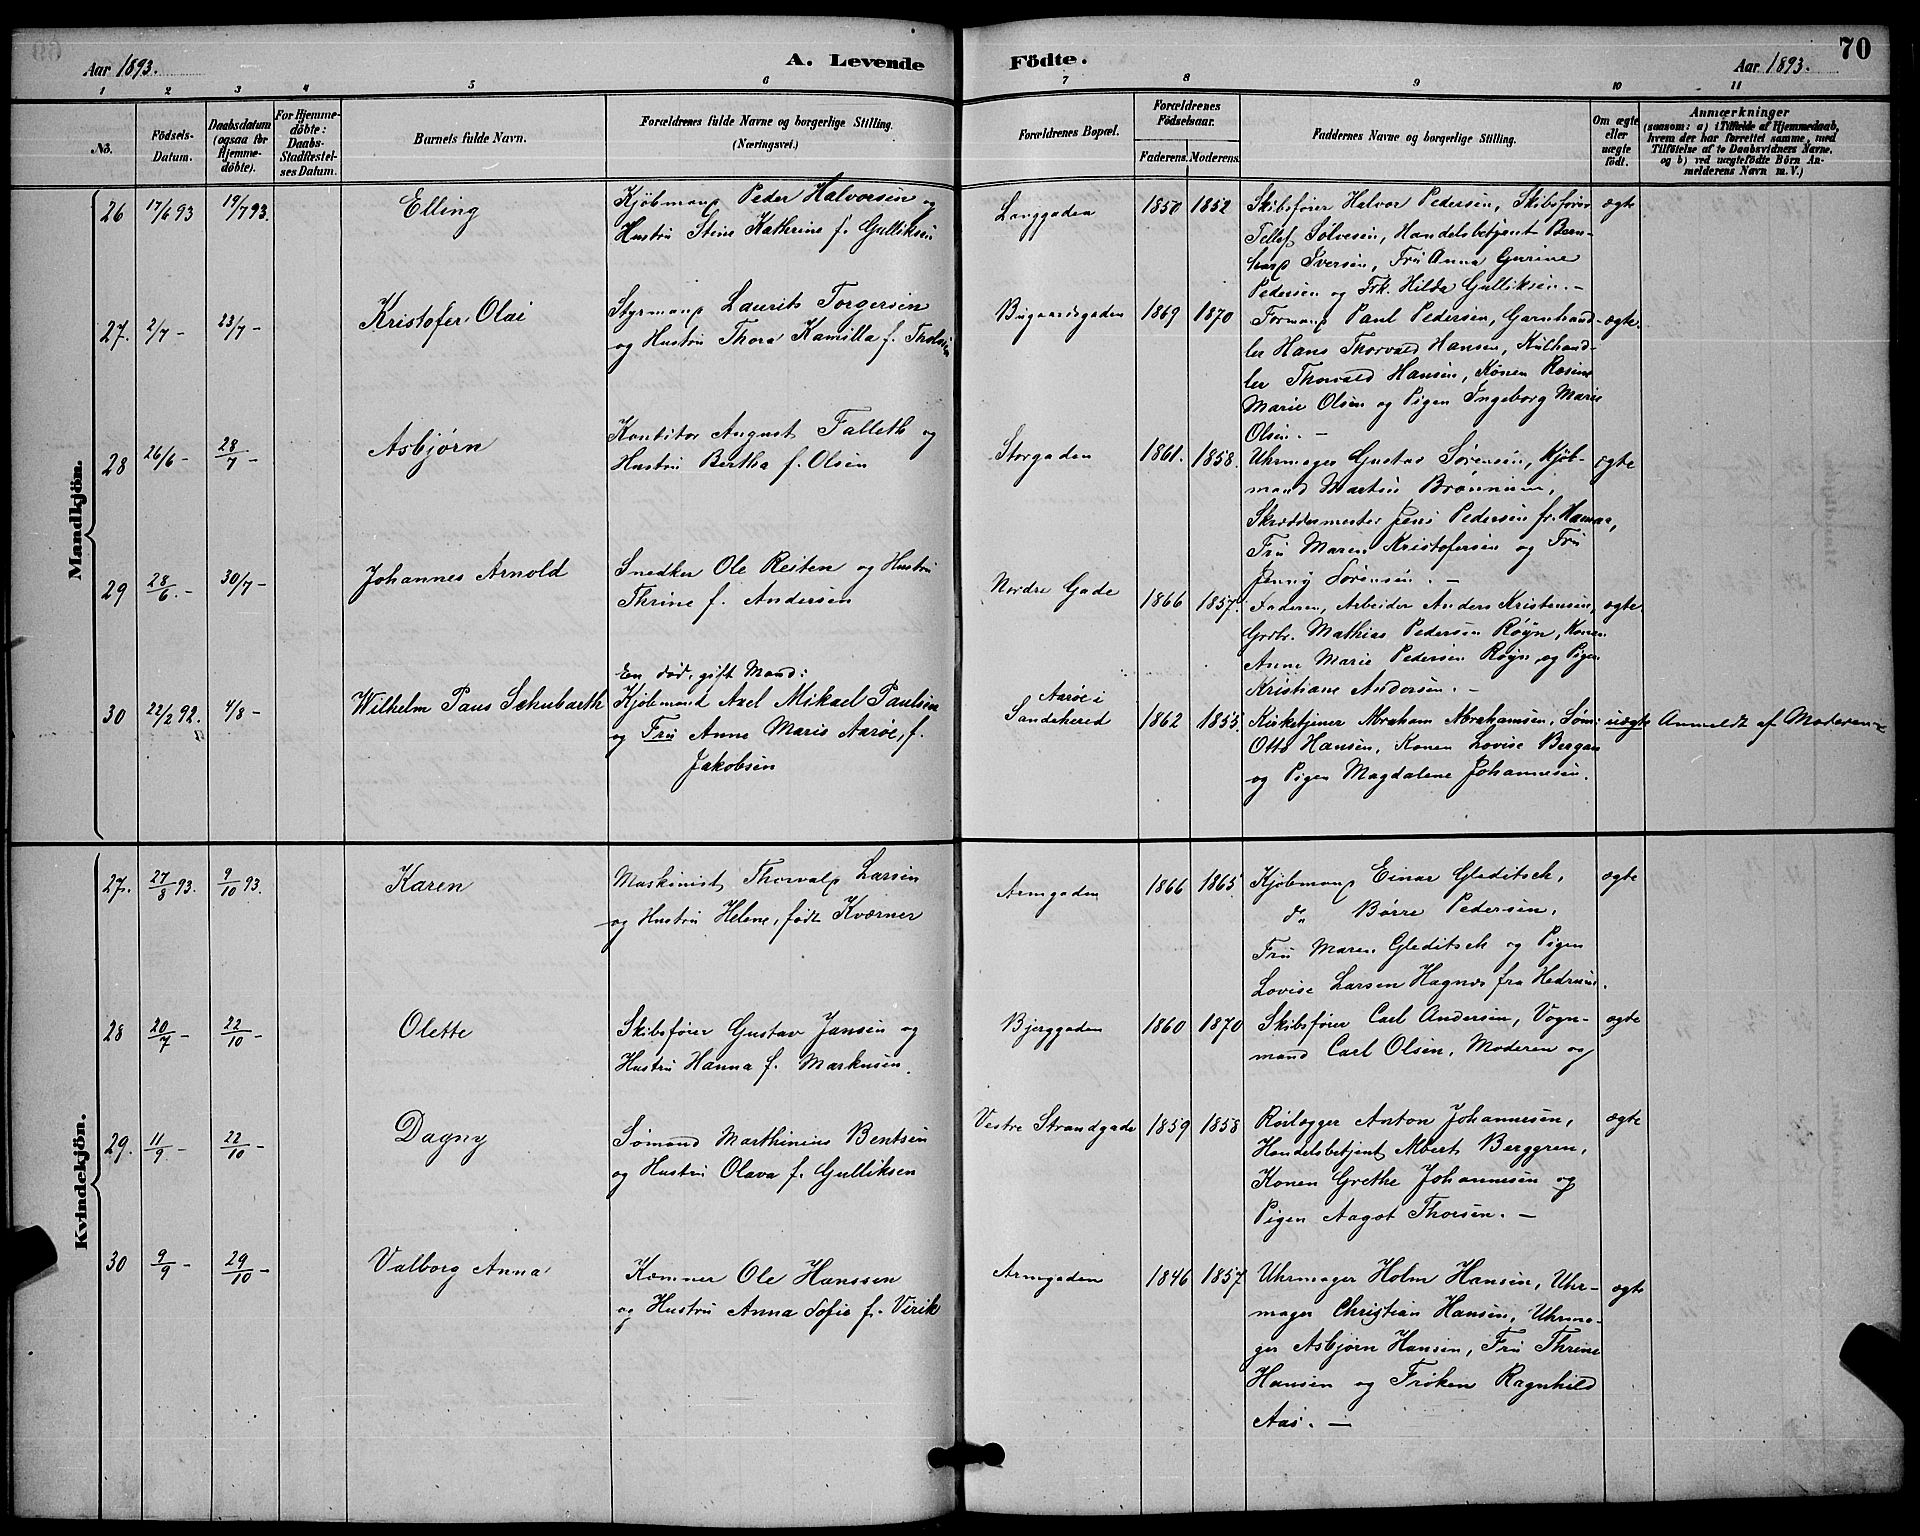 Aar 1893.
A. Levende Födte.
Aar 1893.
70
1 2 3 4 5 6 7 8 9 10 11
No.
Födsels-Datum.
Daabsdatum (ogsaa for Hjemme-döbte).
For Hjemme-döbte: Daabs-Stadfæstel-ses Datum.
Barnets fulde Navn.
Forældrenes fulde Navne og borgerlige Stilling. (Næringsvei.)
Forældrenes Bopæl.
Forældrenes Födselsaar.
Faderens. Moderens.
Faddernes Navne og borgerlige Stilling.
Om ægte eller uægte födt.
Anmærkninger
(saasom: a) i Tilfælde af Hjemmedaab, hvem der har forrettet samme, med Tilföielse af to Daabsvidners Navne, og b) ved uægtefödte Börn An-melderens Navn m. V.)
Mandkjön.
26 17/6 93 19/7 93. Elling
Kjøbmand Peder Halvorsen og
Hustru Stine Kathrine f. Gulliksen
Langgaden 1850 1852
Skibsfører Halvor Pedersen, Skibsfører
Tellef Solvesen, Handelsbetjent Bern-
hard Iversen, Fru Anna Gurine
Pedersen og Frk. Hilda Gulliksen. –
ægte
27. 2/7 – 23/7 – Kristofer Olai
Styrmand Laurits Torgersen
og Hustru Thora Kamilla f.
Bugaardsgaden 1869 1870
Formand Paul Pedersen, Garnhand-
ler Hans Thorvald Hansen, Kulhand-
ler Thorvald Hansen, Konen Rosine
Marie Olsen og Pigen Ingeborg Marie
Olsen. –
ægte.
28 26/6 – 28/7 – Asbjørn
Konditor August Falleth og
Hustru Bertha f. Olsen
Storgaden 1861. 1858.
Uhrmager Gustav Sørensen, Kjøb-
mand Martin
Skreddermester Jens Pedersen fr. Hamar,
Fru Maren Kristofersen og Fru
Jenny Sørensen. –
ægte
29 28/6. – 30/7 – Johannes Arnold
Snedker Ole Reiten og Hustru
Thrine f. Andersen
Nordre Gade 1866 1857.
Faderen, Arbeider Anders Kristensen,
Grdbr. Mathias Pedersen Røyn, Konen
Anne Marie Pedersen Røyn og Pigen
Kristiane Andersen. –
ægte.
30 22/2 92. 4/8 – Wilhelm Paus Schubarth
En død, gift Mand:
Kjøbmand Axel Mikael Paulsen
og Fru Anne Marie Aarøe, f.
Jakobsen
Aarøe i
Sandeherred 1862 1855.
Kirketjener Abraham Abrahamsen, Søm:
Otto Hansen, Konen Lovise Bergan
og Pigen Magdalene Johannesen.
uægte Anmeldt af Moderen
Kvindekjön.
27. 27/8 93. 9/10 93. Karen
Maskinist Thorvald Larsen
og Hustru Helene, født Kværner
Armgaden 1866 1865.
Kjøbmand Einar Gleditsch,
do Børre Pedersen,
Fru Maren Gleditsch og Pigen
Lovise Larsen Hagnæs fra Hedrum.
ægte
28 20/7 – 22/10 – Olette
Skibsfører Gustav Jansen og
Hustru Hanna f. Markusen.
Bjerggaden 1860 1870
Skibsfører Carl Andersen, Vogn-
mand Carl Olsen, Moderen og
ægte
29. 11/9 – 22/10 – Dagny
Sømand Marthinius Bentsen
og Hustru Olava f. Gulliksen
Vestre Strandgade 1859 1858
Rørlægger Anton Johannesen,
Handelsbetjent Albert Berggren,
Konen Grethe Johannesen og
Pigen Aagot Thorsen. –
ægte
30 9/9 – 29/10 – Valborg Anna
Kæmner Ole Hanssen
og Hustru Anna Sofie f. Virik
Armgaden 1846 1857
Uhrmager Holm Hansen, Uhr-
mager Christian Hansen, Uhrma-
ger Asbjørn Hansen, Fru Thrine
Hansen og Frøken Ragnhild
Aas. –
ægte